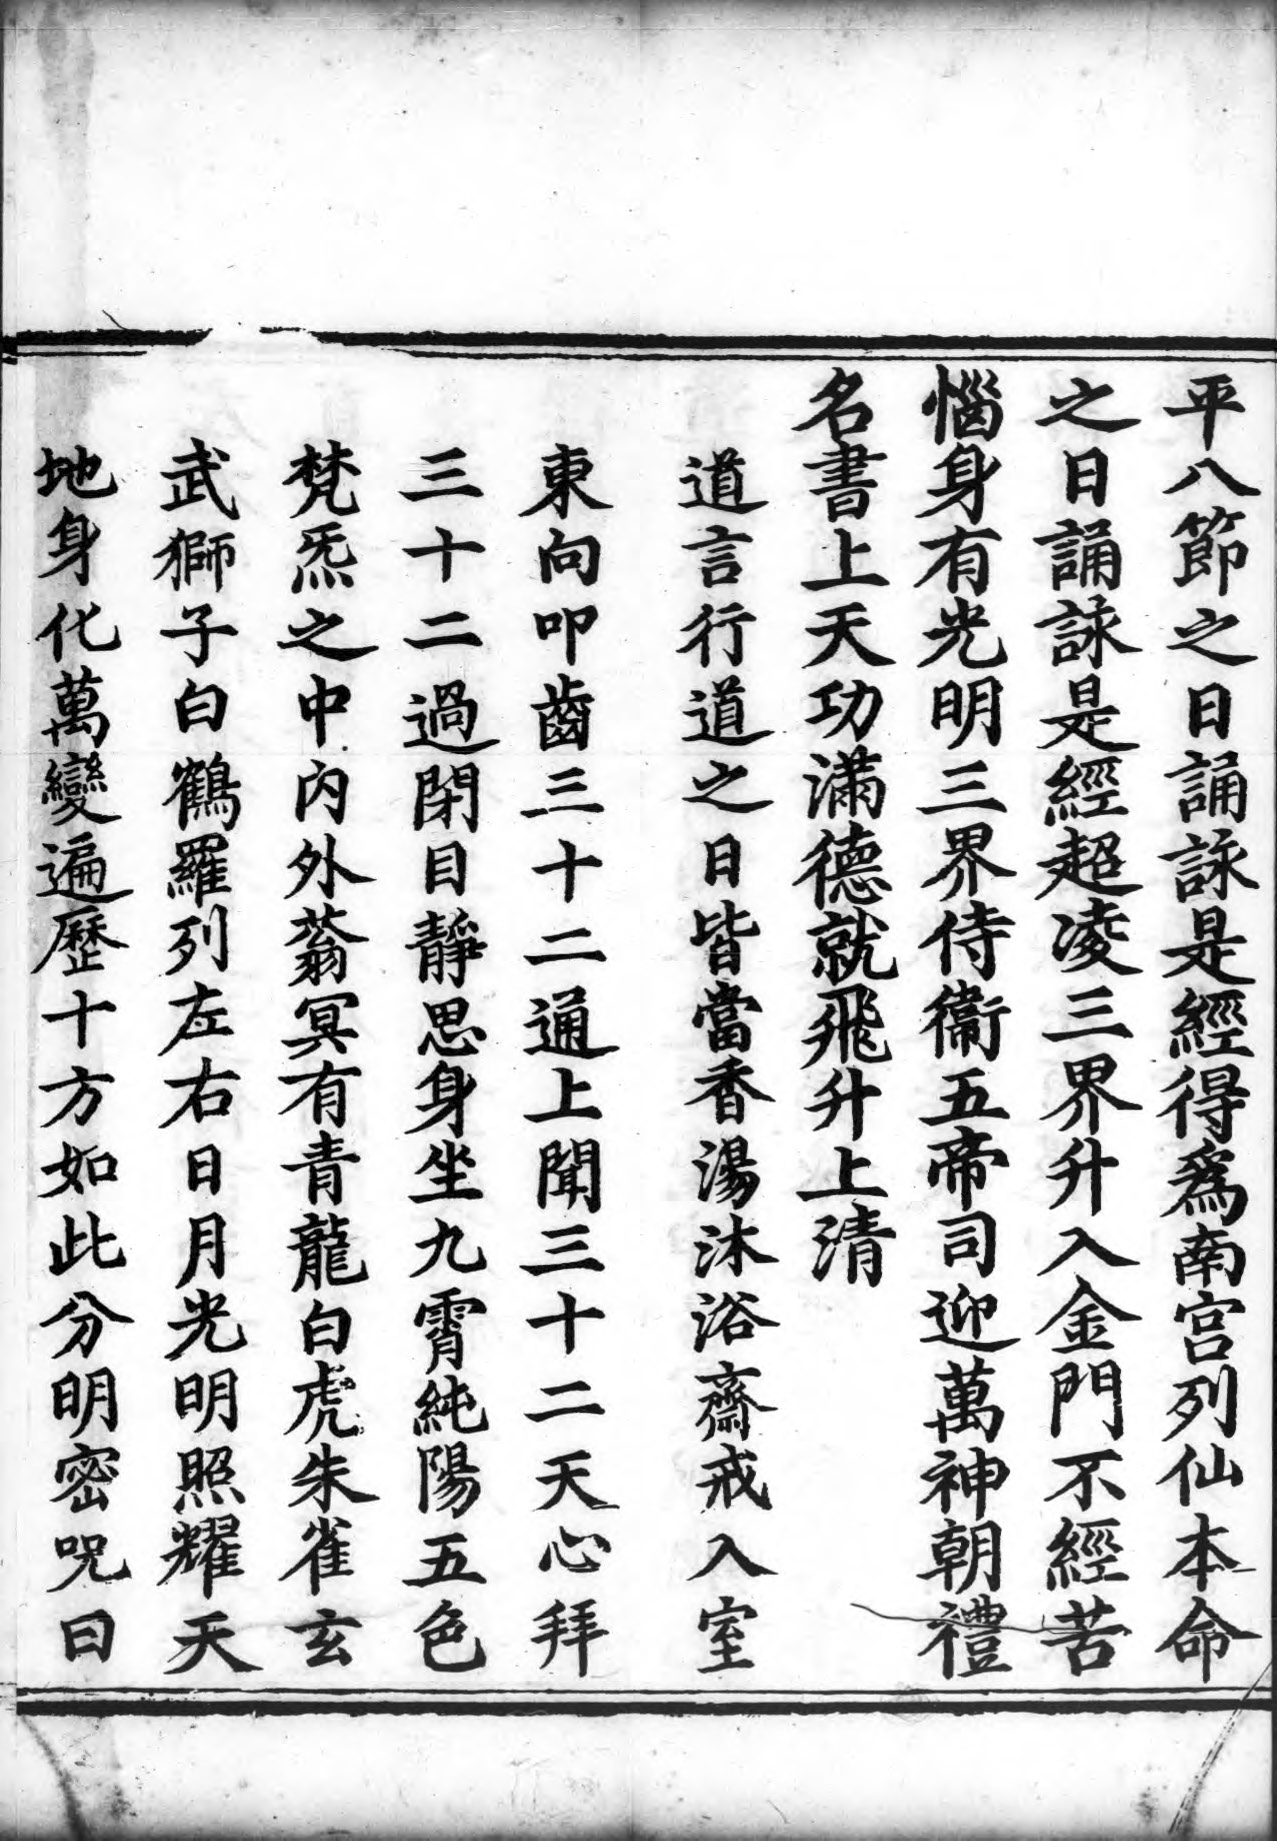 平八節之日誦詠是經得爲南宮列仙本命
之日誦詠是經超凌三界升入金門不經苦
惱身有光明三界侍衞五帝司迎萬神朝禮
名書上天功滿德就飛升上清
道言行道之日皆當香湯沐浴齋戒入室
東向叩齒三十二通上聞三十二天心拜
三十二過閉目靜思身坐九霄純陽五色
梵炁之中內外蓊冥有青龍白虎朱雀玄
武獅子白鶴羅列左右日月光明照耀天
地身化萬變遍歷十方如此分明密咒曰